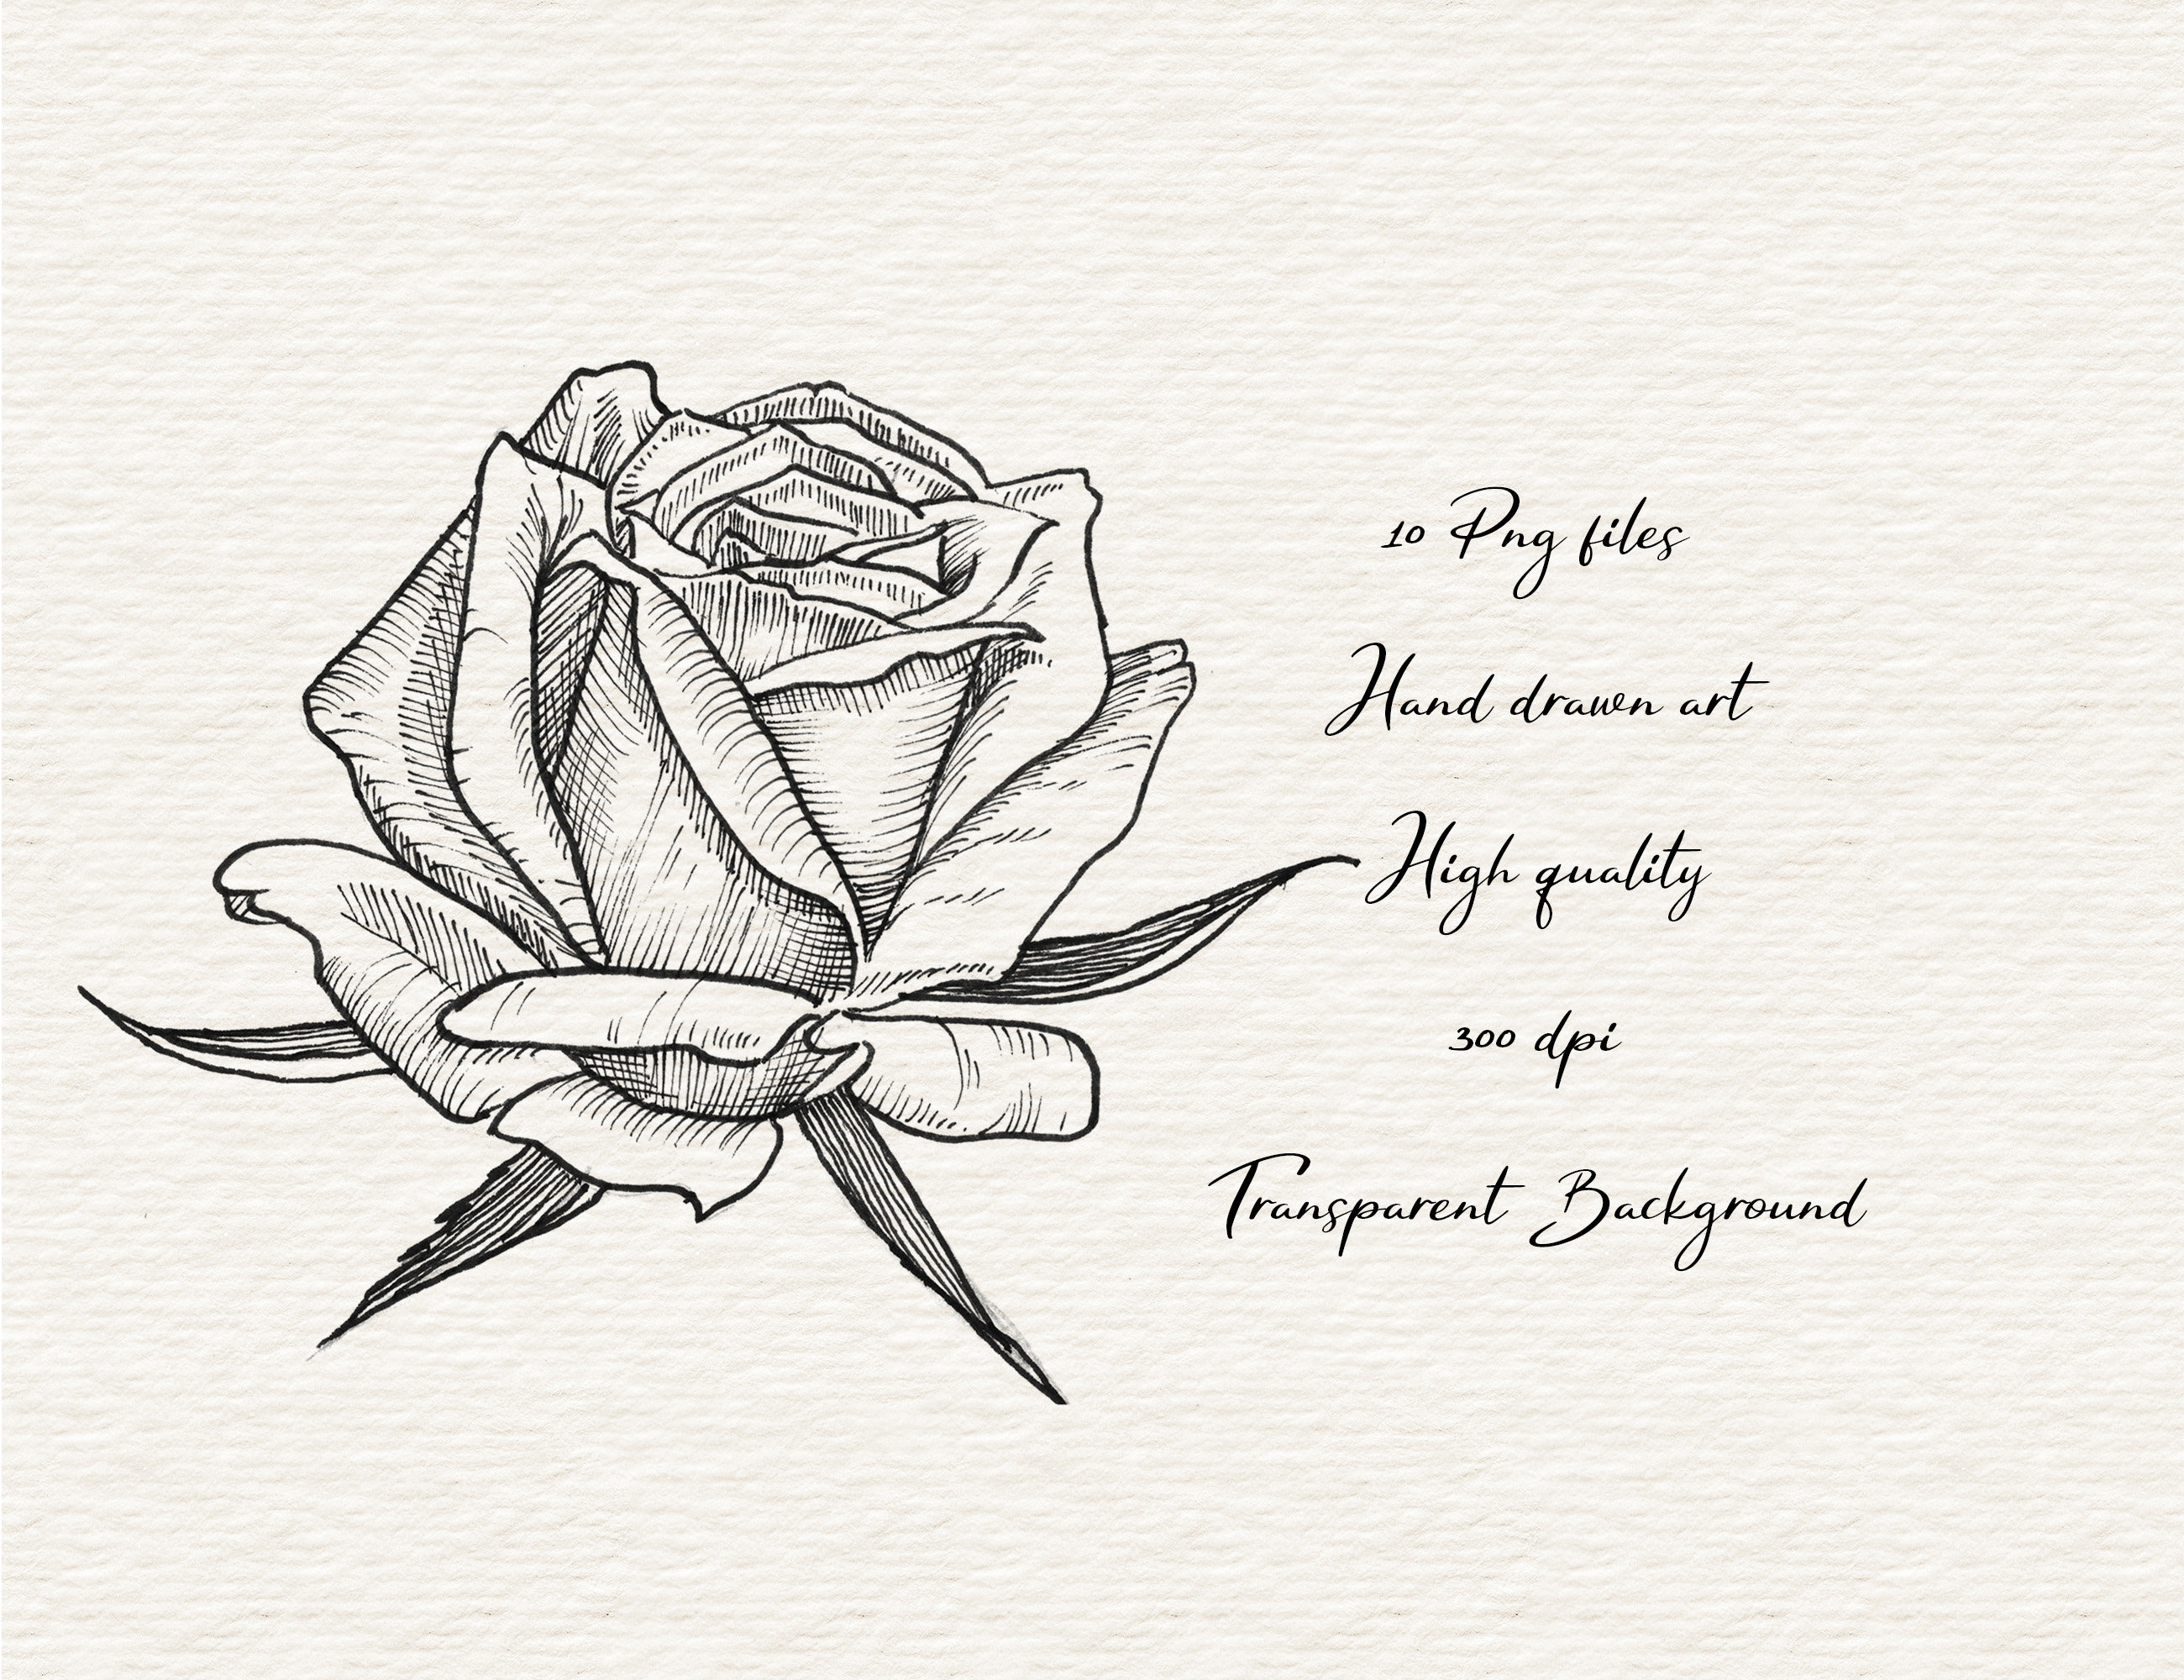 10 Png files
Hand drawn art
High quality
300 dpi
Transparent Background